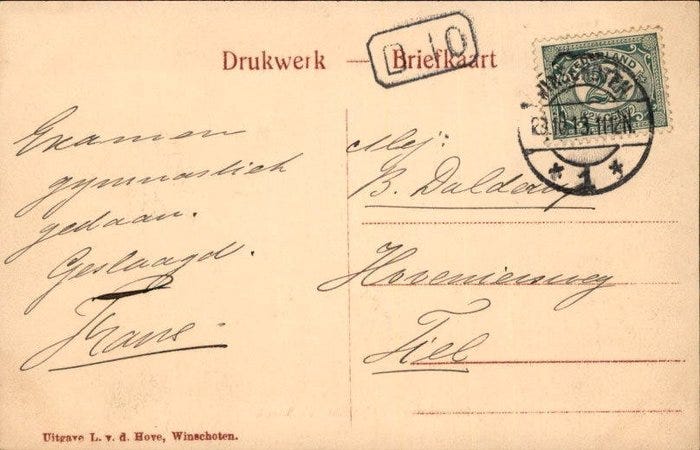 Drukwerk — Briefkaart
D 10
NEDERLAND
2½
29.10.13.11-12N.
* 1 *
Examen
gymnastiek
gedaan.
Geslaagd.
Frans.
Mej:
B. Dalderup
Hoveniersweg
Tiel
Uitgave L. v. d. Hove, Winschoten.